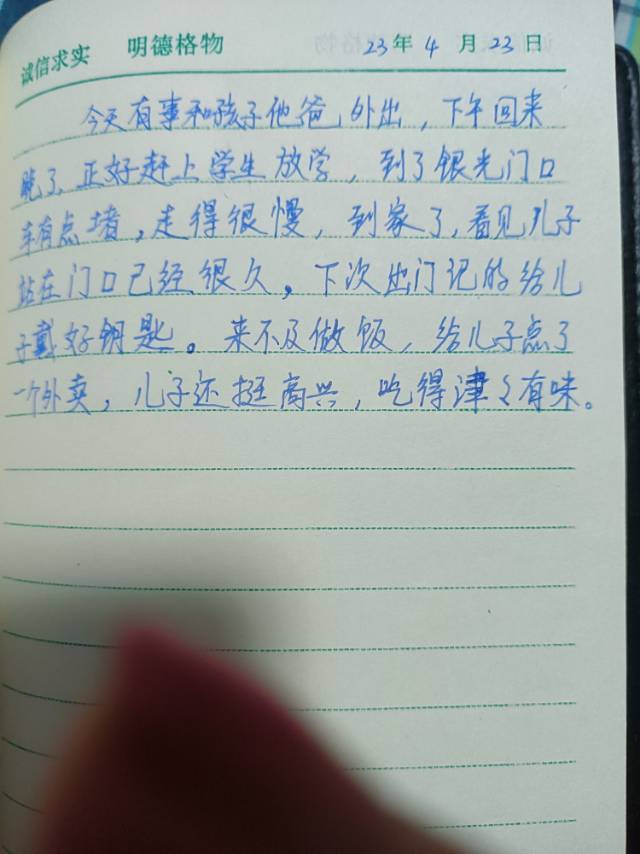 诚信求实 明德格物 23年4月23日
今天有事和孩子他爸外出,下午回来
晚了,正好赶上学生放学,到了银光门口
车有点堵,走得很慢,到家了,看见儿子
站在门口已经很久,下次出门记的给儿
子戴好钥匙。来不及做饭,给儿子点了
一个外卖,儿子还挺高兴,吃得津々有味。